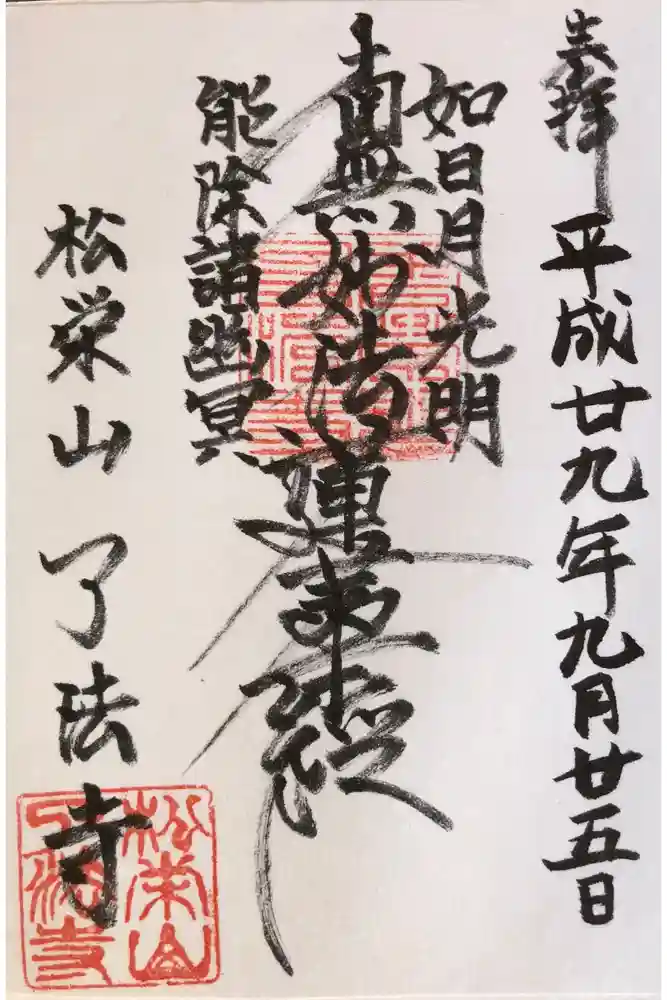 奉拝 平成廿九年九月廿五日
如日月光明
南無妙法蓮華経
能除諸幽冥
松栄山 了法寺
松栄山
了法寺